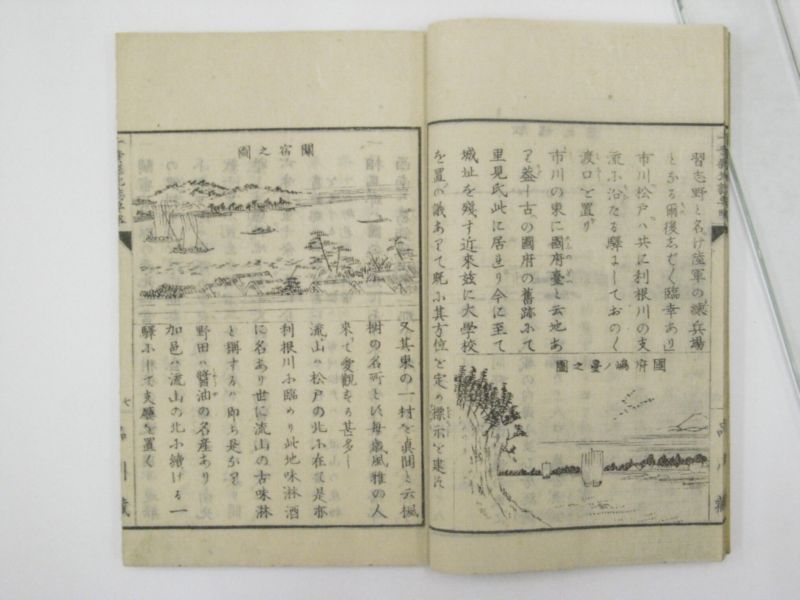 習志野と名け陸軍の練兵場
とかる爾後志ばく臨幸あり
市川松戸ハ共に利根川の支
流ふ沿たる驛にしておのく
渡口を置り
市川の東に國府臺と云地あ
り蓋し古の國府の舊跡ふて
里見氏此に居れり今に至て
城址を殘す近來玆に大學校
を置の議ありて既ふ其方位を定め標示を建たり
國府嶋ノ臺之圖
又其東の一村を眞間と云楓
樹の名所とに毎歳風雅の人
來て愛觀する甚多し
流山ハ松戸の北ふ在て是亦
利根川ふ臨めり此地味淋酒
に名あり世に流山の古味淋
と稱するハ即ち是なり
野田ハ醬油の名產あり
加邑ハ流山の北ふ續ける一
驛ふして支廳を置く
關宿之圖
七